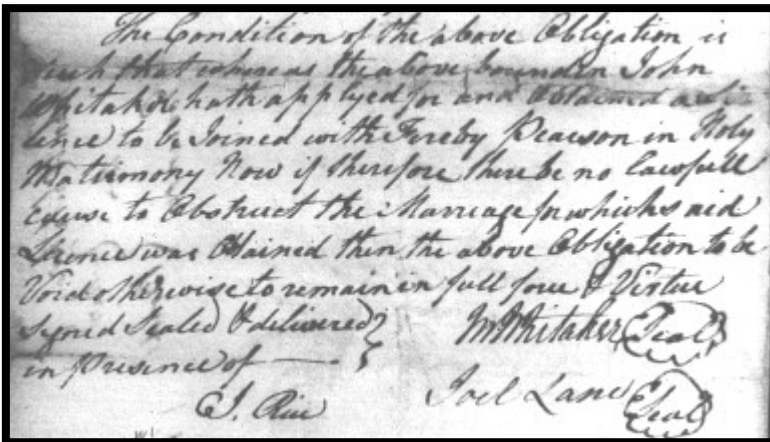 The Condition of the above Obligation is
Such that whereas the above bounden John
Whitaker hath applyed for and Obtained a Li
cence to be Joined with Fereby Pearson in Holy
Matrimony Now if therefore there be no lawfull
cause to Obstruct the Marriage for which said
Licence was Obtained then the above Obligation to be
Void otherwise to remain in full force & Virtue
Signed Sealed & delivered
in Presence of
Whitaker Seal
Joel Lane Seal
J. Rice